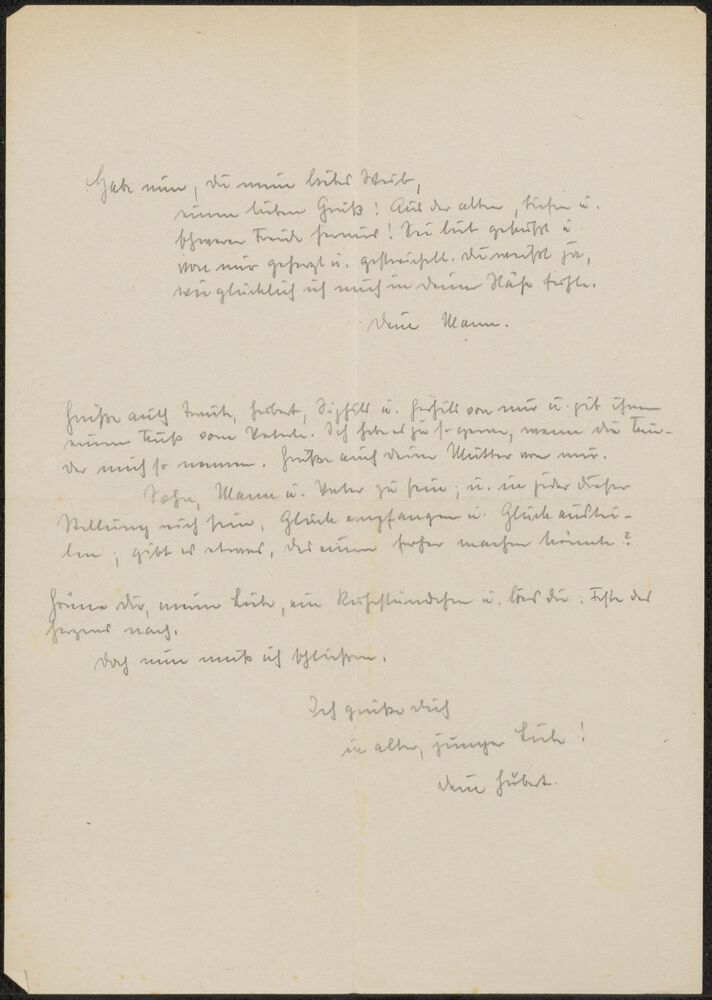 Habe nun, du mein liebes Weib,
einen lieben Gruß! Aus der alten, tiefen u.
schweren Freude heraus! Sei lieb geküßt u.
von mir geherzt u. gestreichelt. Du weißt ja,
wie glücklich ich mich in deiner Nähe fühle.
Dein Mann.
Grüße auch Traute, Herbert, u. von mir u. gib ihnen
einen Kuß vom Vaterle. Ich habe es ja so gerne, wenn die Kin-
der mich so nennen. Grüße auch deine Mutter von mir.
Sohn, Mann u. Vater zu sein; u. in jeder dieser
Stellung reich sein, Glück empfangen u. Glück austei-
len; gibt es etwas, das einen froher machen könnte?
Gönne dir, meine Liebe, ein Ruhestündchen u. lies die: Feste des
Herzens nach.
Doch nun muß ich schließen.
Ich grüße dich
in alter, junger Liebe!
Dein Hubert.